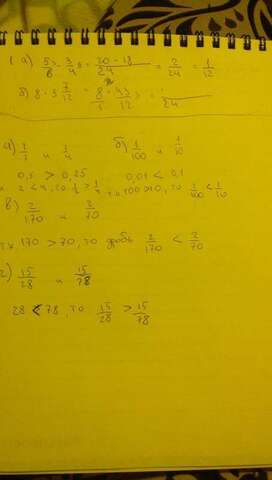 1. а) 5/6 - 3/4 = 20 - 18/24 = 2/24 = 1/12
б) 8 · 3 7/12 = 8/1 · 43/12 =
24
а) 1/2 и 1/4 б) 1/100 и 1/10
0,5 > 0,25 0,01 < 0,1
2 < 4, то 1/2 > 1/4 100 > 10, то 1/100 < 1/10
в) 2/170 и 2/70
т.к. 170 > 70, то дробь 2/170 < 2/70
г) 15/28 и 15/78
28 < 78, то 15/28 > 15/78